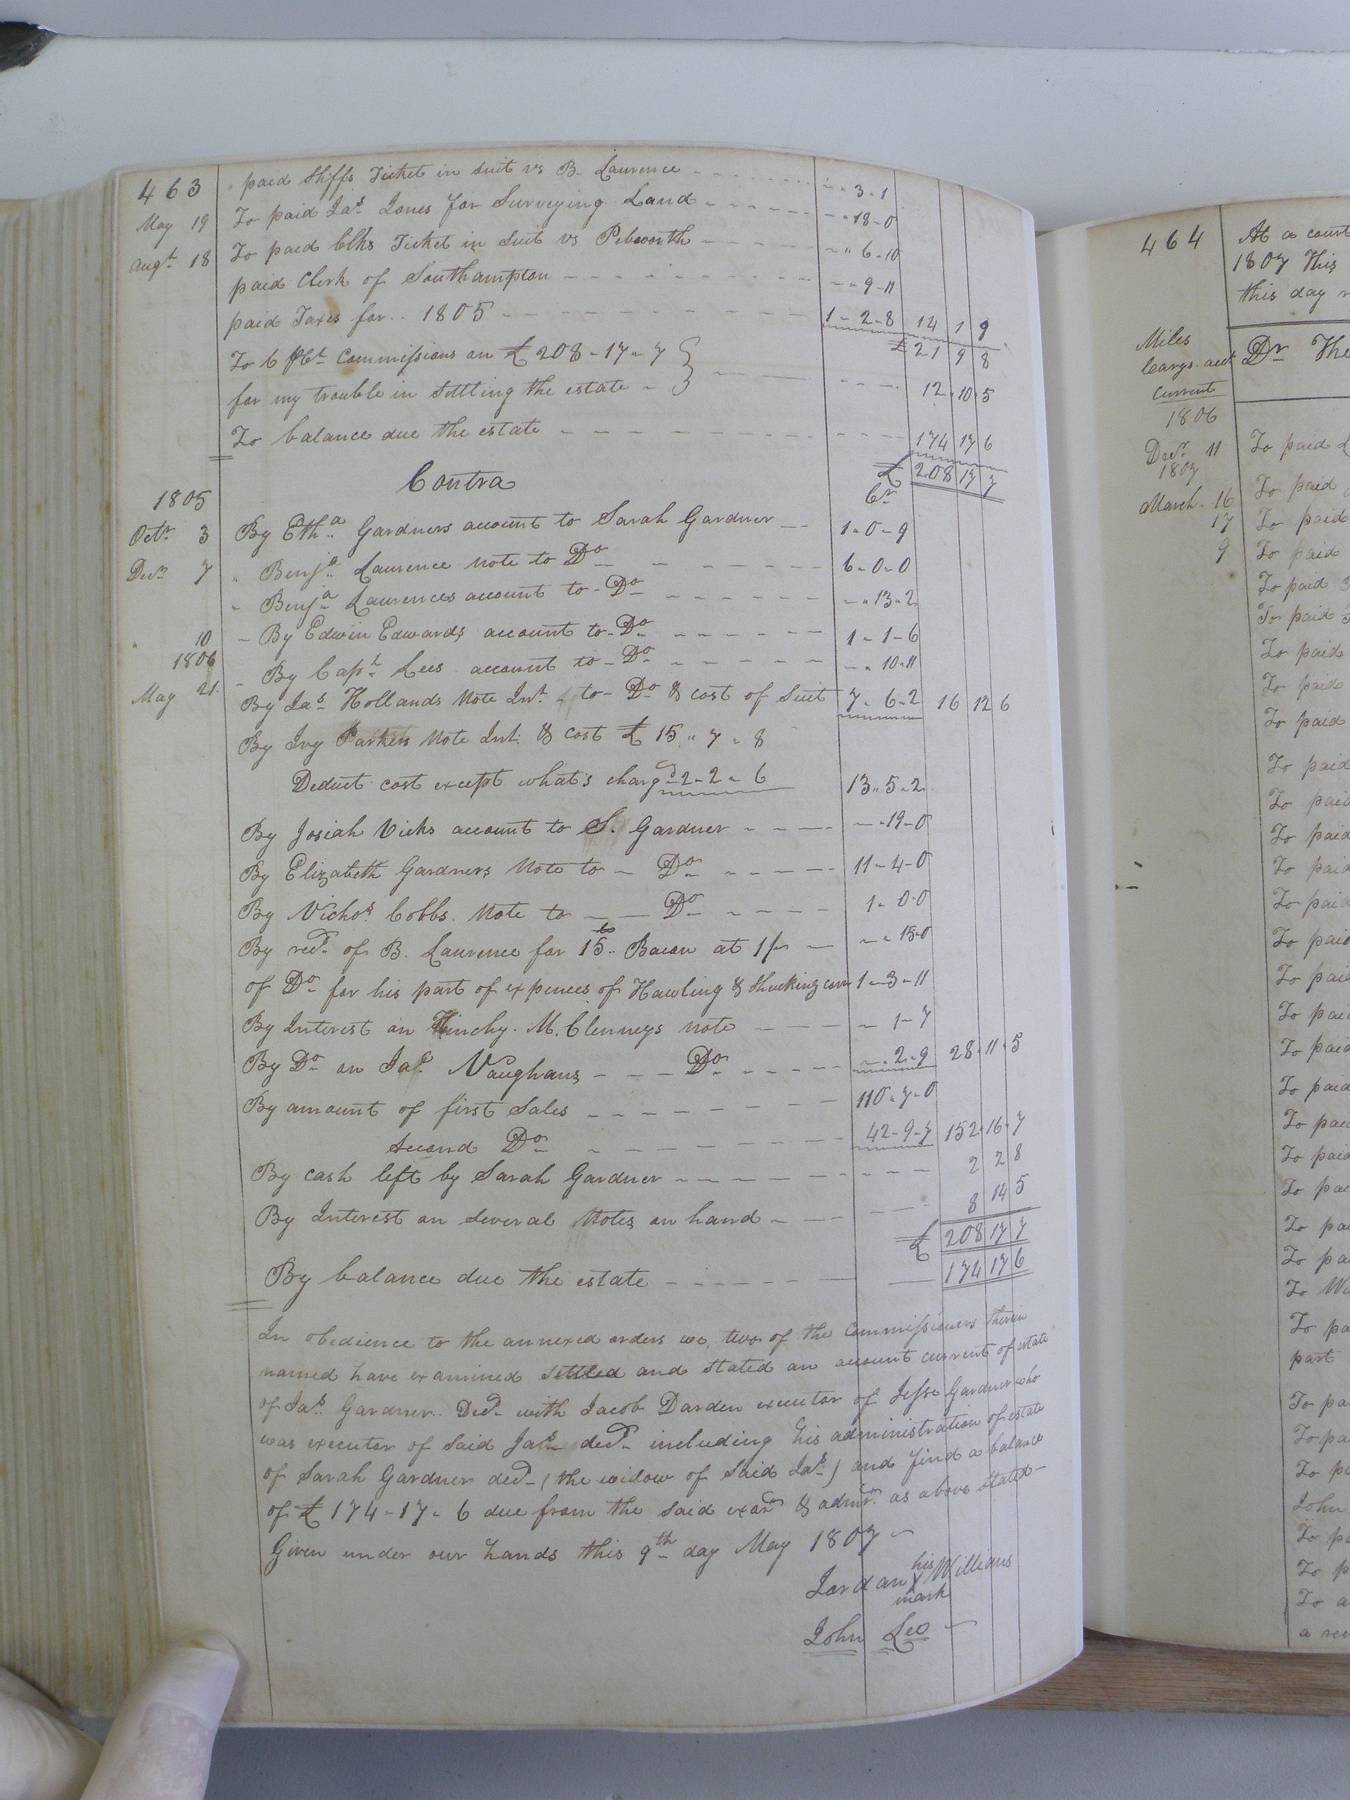 463 " paid Shffs Ticket in suit vs B. Laurence - - - " " 3 " 1
May 19 To paid Jas. Jones for Surveying Land - - - " " 18 - 0
Augt. 18 To paid Clks Ticket in Suit vs Pebworth - - - " " 6 - 10
paid Clerk of Southampton - - - " " 9 - 11
paid Taxes for .. 1805 - - - 1 - 2 - 8 14 1 9
£ 21 9 8
To 6 pCt. Commissions on £ 208 - 17 - 7
for my trouble in settling the estate - - - 12 10 5
To balance due the estate - - - 174 17 6
£ 208 17 7
Contra Cr.
1805
Octr. 3 By Etha. Gardners account to Sarah Gardner - 1 - 0 - 9
Decr. 7 " Benja. Laurence note to Do - - - 6 - 0 - 0
" Benja. Laurences account to - Do - - - " 13 - 2
" 10 - By Edwin Edwards account to - Do - - - 1 - 1 - 6
1806
- By Capt. Lees account to - Do - - - " 10 - 11
May 21. By Jas. Hollands Note Int. to - Do & cost of Suit 7 - 6 - 2 16 12 6
By Ivy Parkers Note Int. & cost £ 15 " 7 - 8
Deduct cost except what's chargd - 2 - 2 - 6 13 - 5 - 2
By Josiah Vicks account to S. Gardner - - - - 19 - 0
By Elizabeth Gardners Note to - Do - - - 11 - 4 - 0
By Nichos. Cobbs Note to - - Do - - - 1 - 0 - 0
By recd. of B. Laurence for 15 lbs Bacon at 1/- - " 15 - 0
of Do for his part of expences of Hawling & Shucking corn 1 - 3 - 11
By Interest on Kinchy. McClenneys note - - - - 1 - 7
By Do on Jas. Vaughans - - - Do - - - " 2 - 9 28 11 5
By amount of first Sales - - - 110 - 7 - 0
Second Do - - - 42 - 9 - 7 152 16 7
By cash left by Sarah Gardner - - - 2 2 8
By Interest on several Notes on hand - - - 8 14 5
£ 208 17 7
By balance due the estate - - - 174 17 6
In obedience to the annexed orders we two of the commissioners therein
named have examined settled and stated an account current of estate
of Jas. Gardner Decd. with Jacob Darden executor of Jesse Gardner who
was executor of said Jas. decd. including his administration of estate
of Sarah Gardner decd. (the widow of said Jas.) and find a balance
of £ 174 - 17 - 6 due from the said exor. & admr. as above stated -
Given under our hands this 9th day May 1807 -
his
Jordan X Williams
mark
John Leo
464 At a court
1807 This
this day
Miles
Carys. acct
Current
Dr The
1806
Decr. 11 To paid
1807
March. 16 To paid
17 To paid
9 To paid
To paid
To paid
To paid
To paid
To paid
To paid
To paid
To paid
To paid
To paid
To paid
To paid
To paid
To paid
To paid
To paid
To paid
To pa
To pa
To pa
To
To pa
part
To pa
To pa
To pa
John
To pa
To p
To a